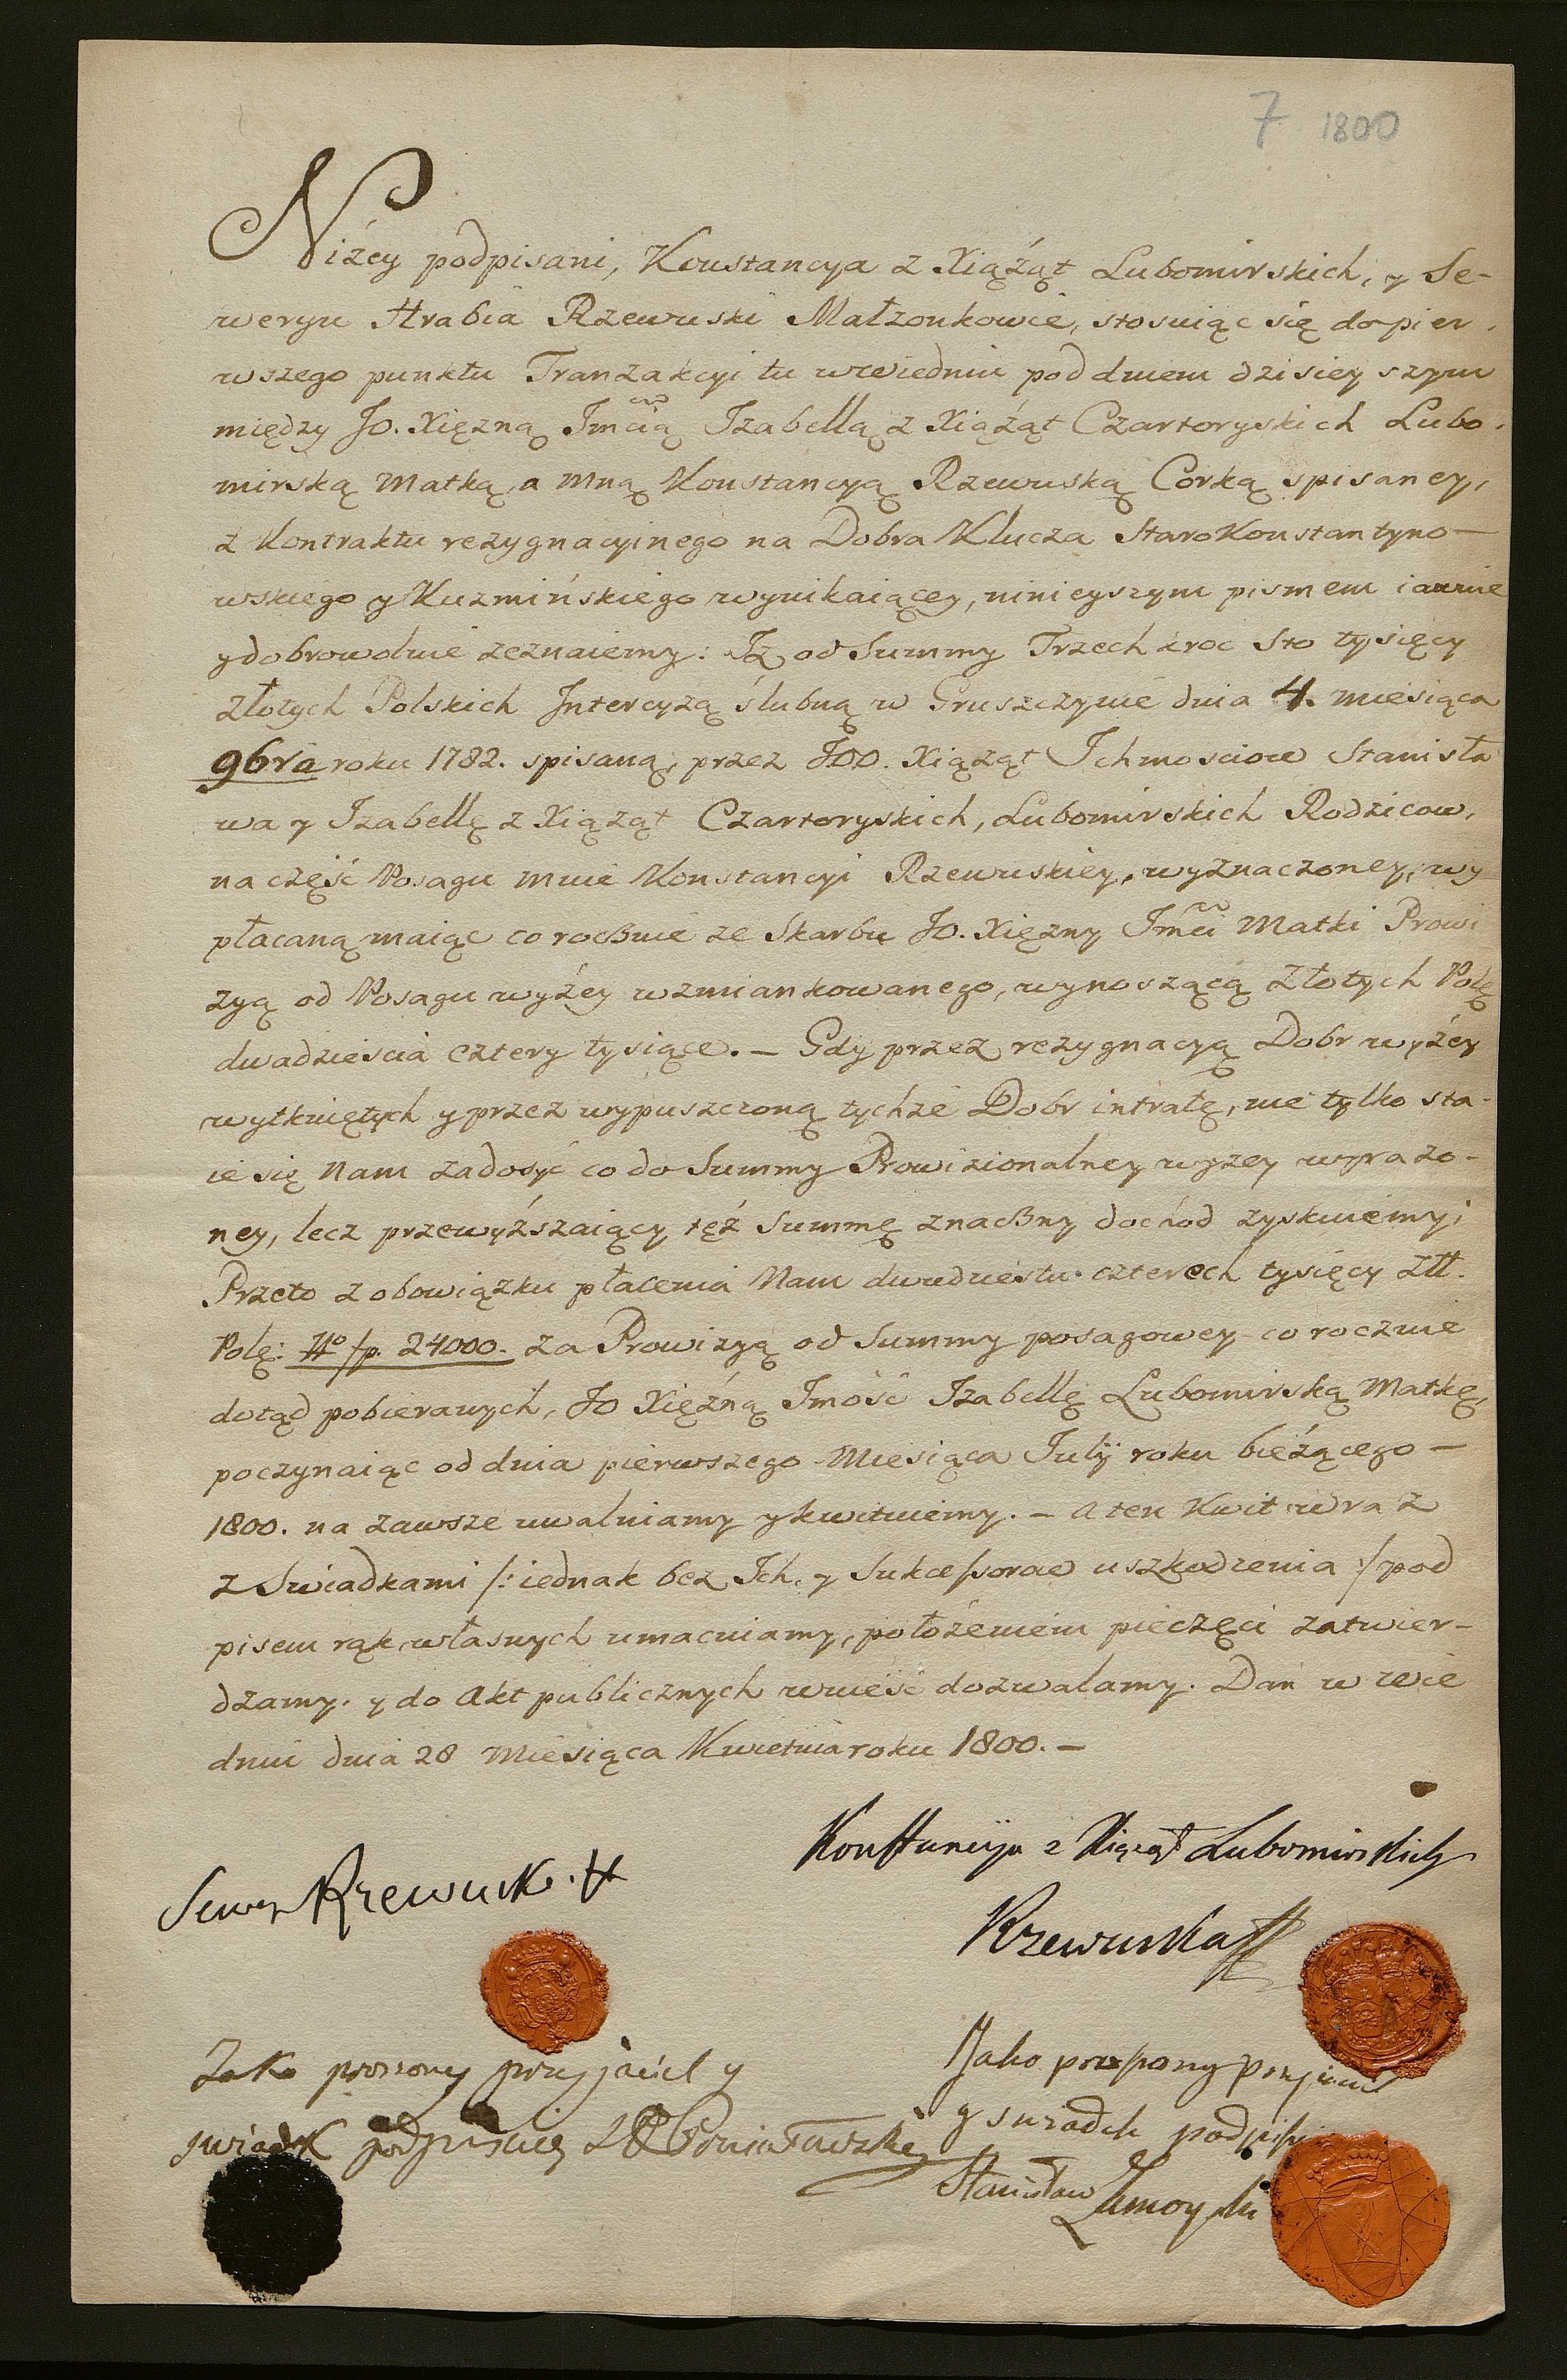 7 1800
Niżey podpisani, Konstancya z Xiążąt Lubomirskich, y Se-
weryn Hrabia Rzewuski Małżonkowie, stosuiąc się do pier-
wszego punktu Tranzakcyi tu w Wiedniu pod dniem dzisieyszym
między JO. Xiężną Imcią Izabellą z Xiążąt Czartoryskich Lubo-
mirską Matką, a Mną Konstancyą Rzewuską Corką spisaney,
z Kontraktu rezygnacyinego na Dobra Klucza Starokonstantyno-
wskiego y Kuzmińskiego wynikaiącey, ninieyszym pismem iawnie
y dobrowolnie zeznaiemy: Iż od Summy Trzech kroc Sto tysięcy
złotych Polskich Intercyzą ślubną w Gruszczynie dnia 4. miesiąca
9bra roku 1782. spisaną, przez JOO. Xiążąt Ichmosciow Stanisła
wa y Izabellę z Xiążąt Czartoryskich, Lubomirskich Rodzicow,
na część Posagu mnie Konstancyi Rzewuskiey, wyznaczoney, wy
płacaną maiąc corocznie ze Skarbu JO. Xiężny Imci Matki Prowi
zyą od Posagu wyżey wzmiankowanego, wynoszącą Złotych Polę
dwadzieścia cztery tysiące. – Gdy przez rezygnacyą Dobr wyżey
wytkniętych y przez wypuszczoną tychże Dobr intratę, nie tylko sta-
ie się Nam zadosyć co do Summy Prowizionalney wyżey wyrażo-
ney, lecz przewyższaiący też Summę znaczny dochod zyskuiemy;
Przeto z obowiązku płacenia Nam dwudziestu czterech tysięcy Złł.
Polę: No fp. 24000. za Prowizyą od Summy posagowey corocznie
dotąd pobieranych, JO Xiężną Imość Izabellę Lubomirską Matkę,
poczynaiąc od dnia pierwszego Miesiąca Julÿ roku bieżącego –
1800. na zawsze uwalniamy y kwituiemy. – A ten Kwit wraz
z Swiadkami /: iednak bez Ich, y Sukcessorow uszkodzenia :/ pod
pisem rąk własnych umacniamy, położeniem pieczęci zatwier-
dzamy. y do Akt publicznych wnieść dozwalamy. Dan w Wie
dniu dnia 28 Miesiąca Kwietnia roku 1800. –
Konstancyja z Xiążąt Lubomirskich
Sewer Rzewuski. H
Rzewuska H
Jako proszony przyjaciel y
swiadek podpisuię
Jako proszony przyjaciel
y swiadek podpisu
Stanisław Zamoyski